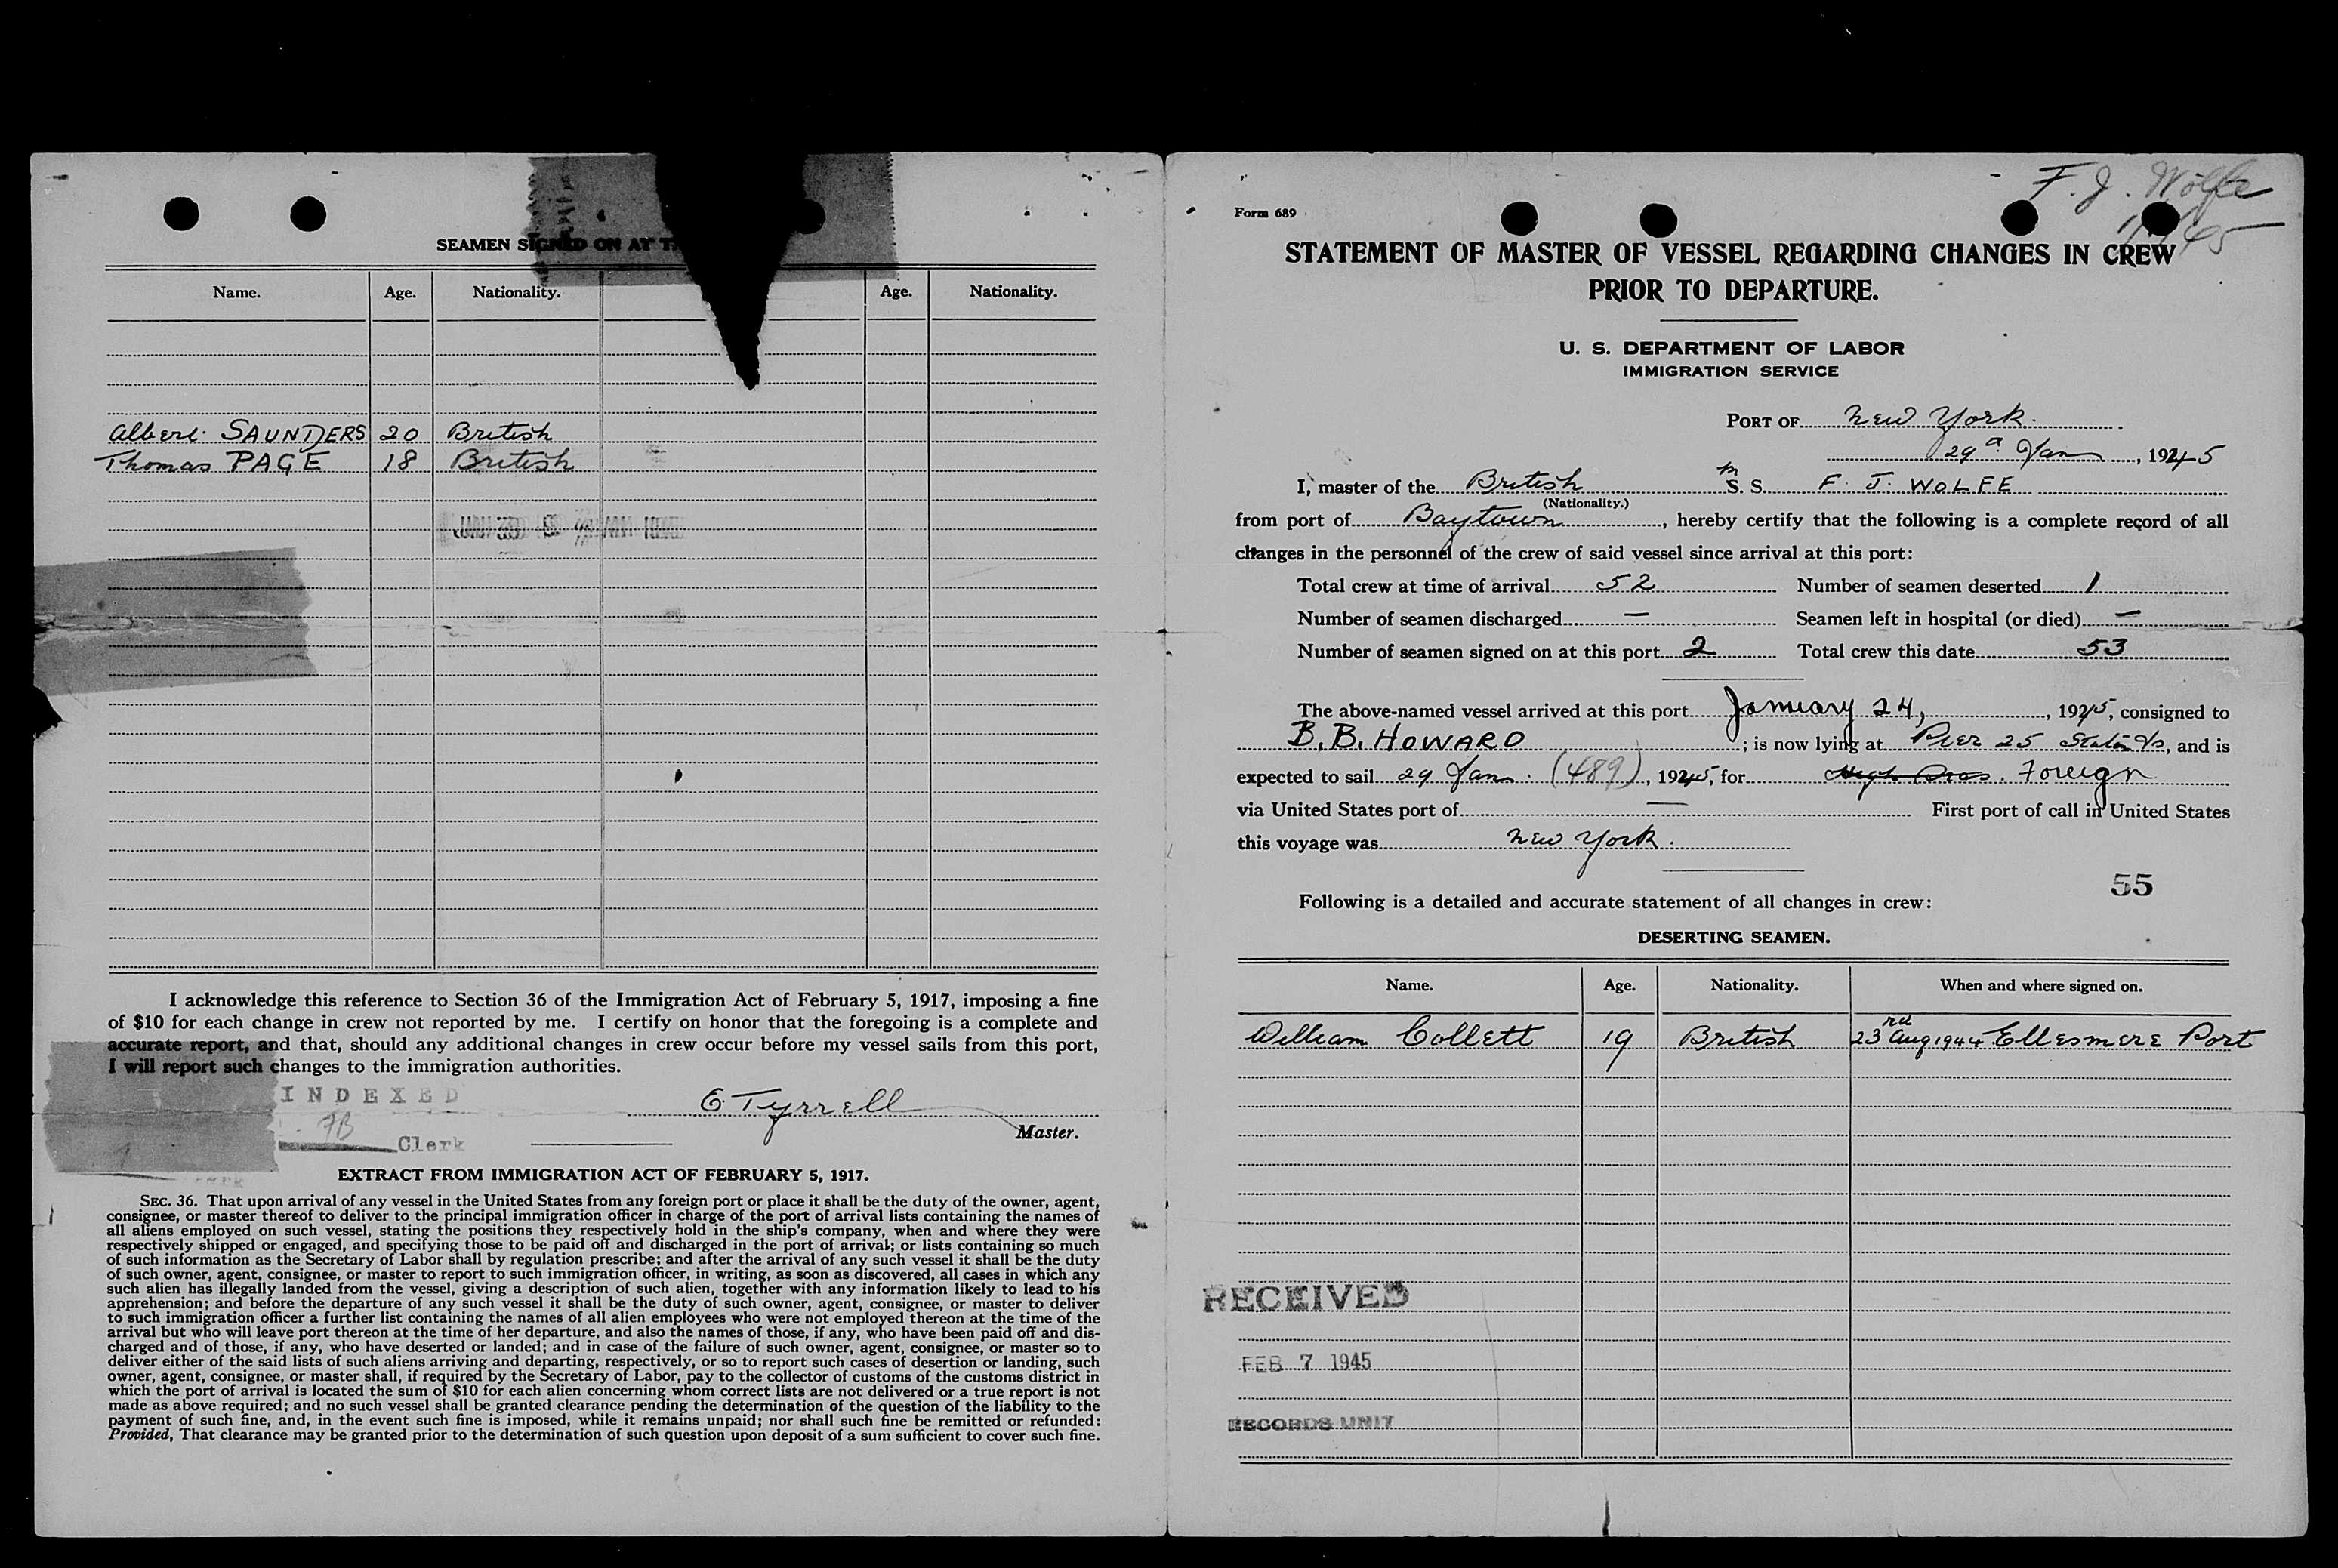 SEAMEN SIGNED ON AT T
Name. Age. Nationality. Age. Nationality.
Albert SAUNDERS 20 British
Thomas PAGE 18 British
I acknowledge this reference to Section 36 of the Immigration Act of February 5, 1917, imposing a fine
of $10 for each change in crew not reported by me. I certify on honor that the foregoing is a complete and
accurate report, and that, should any additional changes in crew occur before my vessel sails from this port,
I will report such changes to the immigration authorities.
INDEXED
E Tyrrell
Master.
Clerk
EXTRACT FROM IMMIGRATION ACT OF FEBRUARY 5, 1917.
SEC. 36. That upon arrival of any vessel in the United States from any foreign port or place it shall be the duty of the owner, agent,
consignee, or master thereof to deliver to the principal immigration officer in charge of the port of arrival lists containing the names of
all aliens employed on such vessel, stating the positions they respectively hold in the ship's company, when and where they were
respectively shipped or engaged, and specifying those to be paid off and discharged in the port of arrival; or lists containing so much
of such information as the Secretary of Labor shall by regulation prescribe; and after the arrival of any such vessel it shall be the duty
of such owner, agent, consignee, or master to report to such immigration officer, in writing, as soon as discovered, all cases in which any
such alien has illegally landed from the vessel, giving a description of such alien, together with any information likely to lead to his
apprehension; and before the departure of any such vessel it shall be the duty of such owner, agent, consignee, or master to deliver
to such immigration officer a further list containing the names of all alien employees who were not employed thereon at the time of the
arrival but who will leave port thereon at the time of her departure, and also the names of those, if any, who have been paid off and dis-
charged and of those, if any, who have deserted or landed; and in case of the failure of such owner, agent, consignee, or master so to
deliver either of the said lists of such aliens arriving and departing, respectively, or so to report such cases of desertion or landing, such
owner, agent, consignee, or master shall, if required by the Secretary of Labor, pay to the collector of customs of the customs district in
which the port of arrival is located the sum of $10 for each alien concerning whom correct lists are not delivered or a true report is not
made as above required; and no such vessel shall be granted clearance pending the determination of the question of the liability to the
payment of such fine, and, in the event such fine is imposed, while it remains unpaid; nor shall such fine be remitted or refunded:
Provided, That clearance may be granted prior to the determination of such question upon deposit of a sum sufficient to cover such fine.
F. J. Wolfe
Form 689
STATEMENT OF MASTER OF VESSEL REGARDING CHANGES IN CREW
PRIOR TO DEPARTURE.
U. S. DEPARTMENT OF LABOR
IMMIGRATION SERVICE
PORT OF New York.
29 Jan, 1945
I, master of the British S. S. F. J. WOLFE
(Nationality.)
from port of Baytown, hereby certify that the following is a complete record of all
changes in the personnel of the crew of said vessel since arrival at this port:
Total crew at time of arrival 52 Number of seamen deserted 1
Number of seamen discharged — Seamen left in hospital (or died) —
Number of seamen signed on at this port 2 Total crew this date 53
The above-named vessel arrived at this port January 24, 1945, consigned to
B.B. HOWARD; is now lying at Pier 25 , and is
expected to sail 29 Jan. (489), 1945, for Foreign
via United States port of — First port of call in United States
this voyage was New York.
55
Following is a detailed and accurate statement of all changes in crew:
DESERTING SEAMEN.
Name. Age. Nationality. When and where signed on.
William Collett 19 British 23rd Aug 1944 Ellesmere Port
RECEIVED
FEB 7 1945
RECORDS UNIT